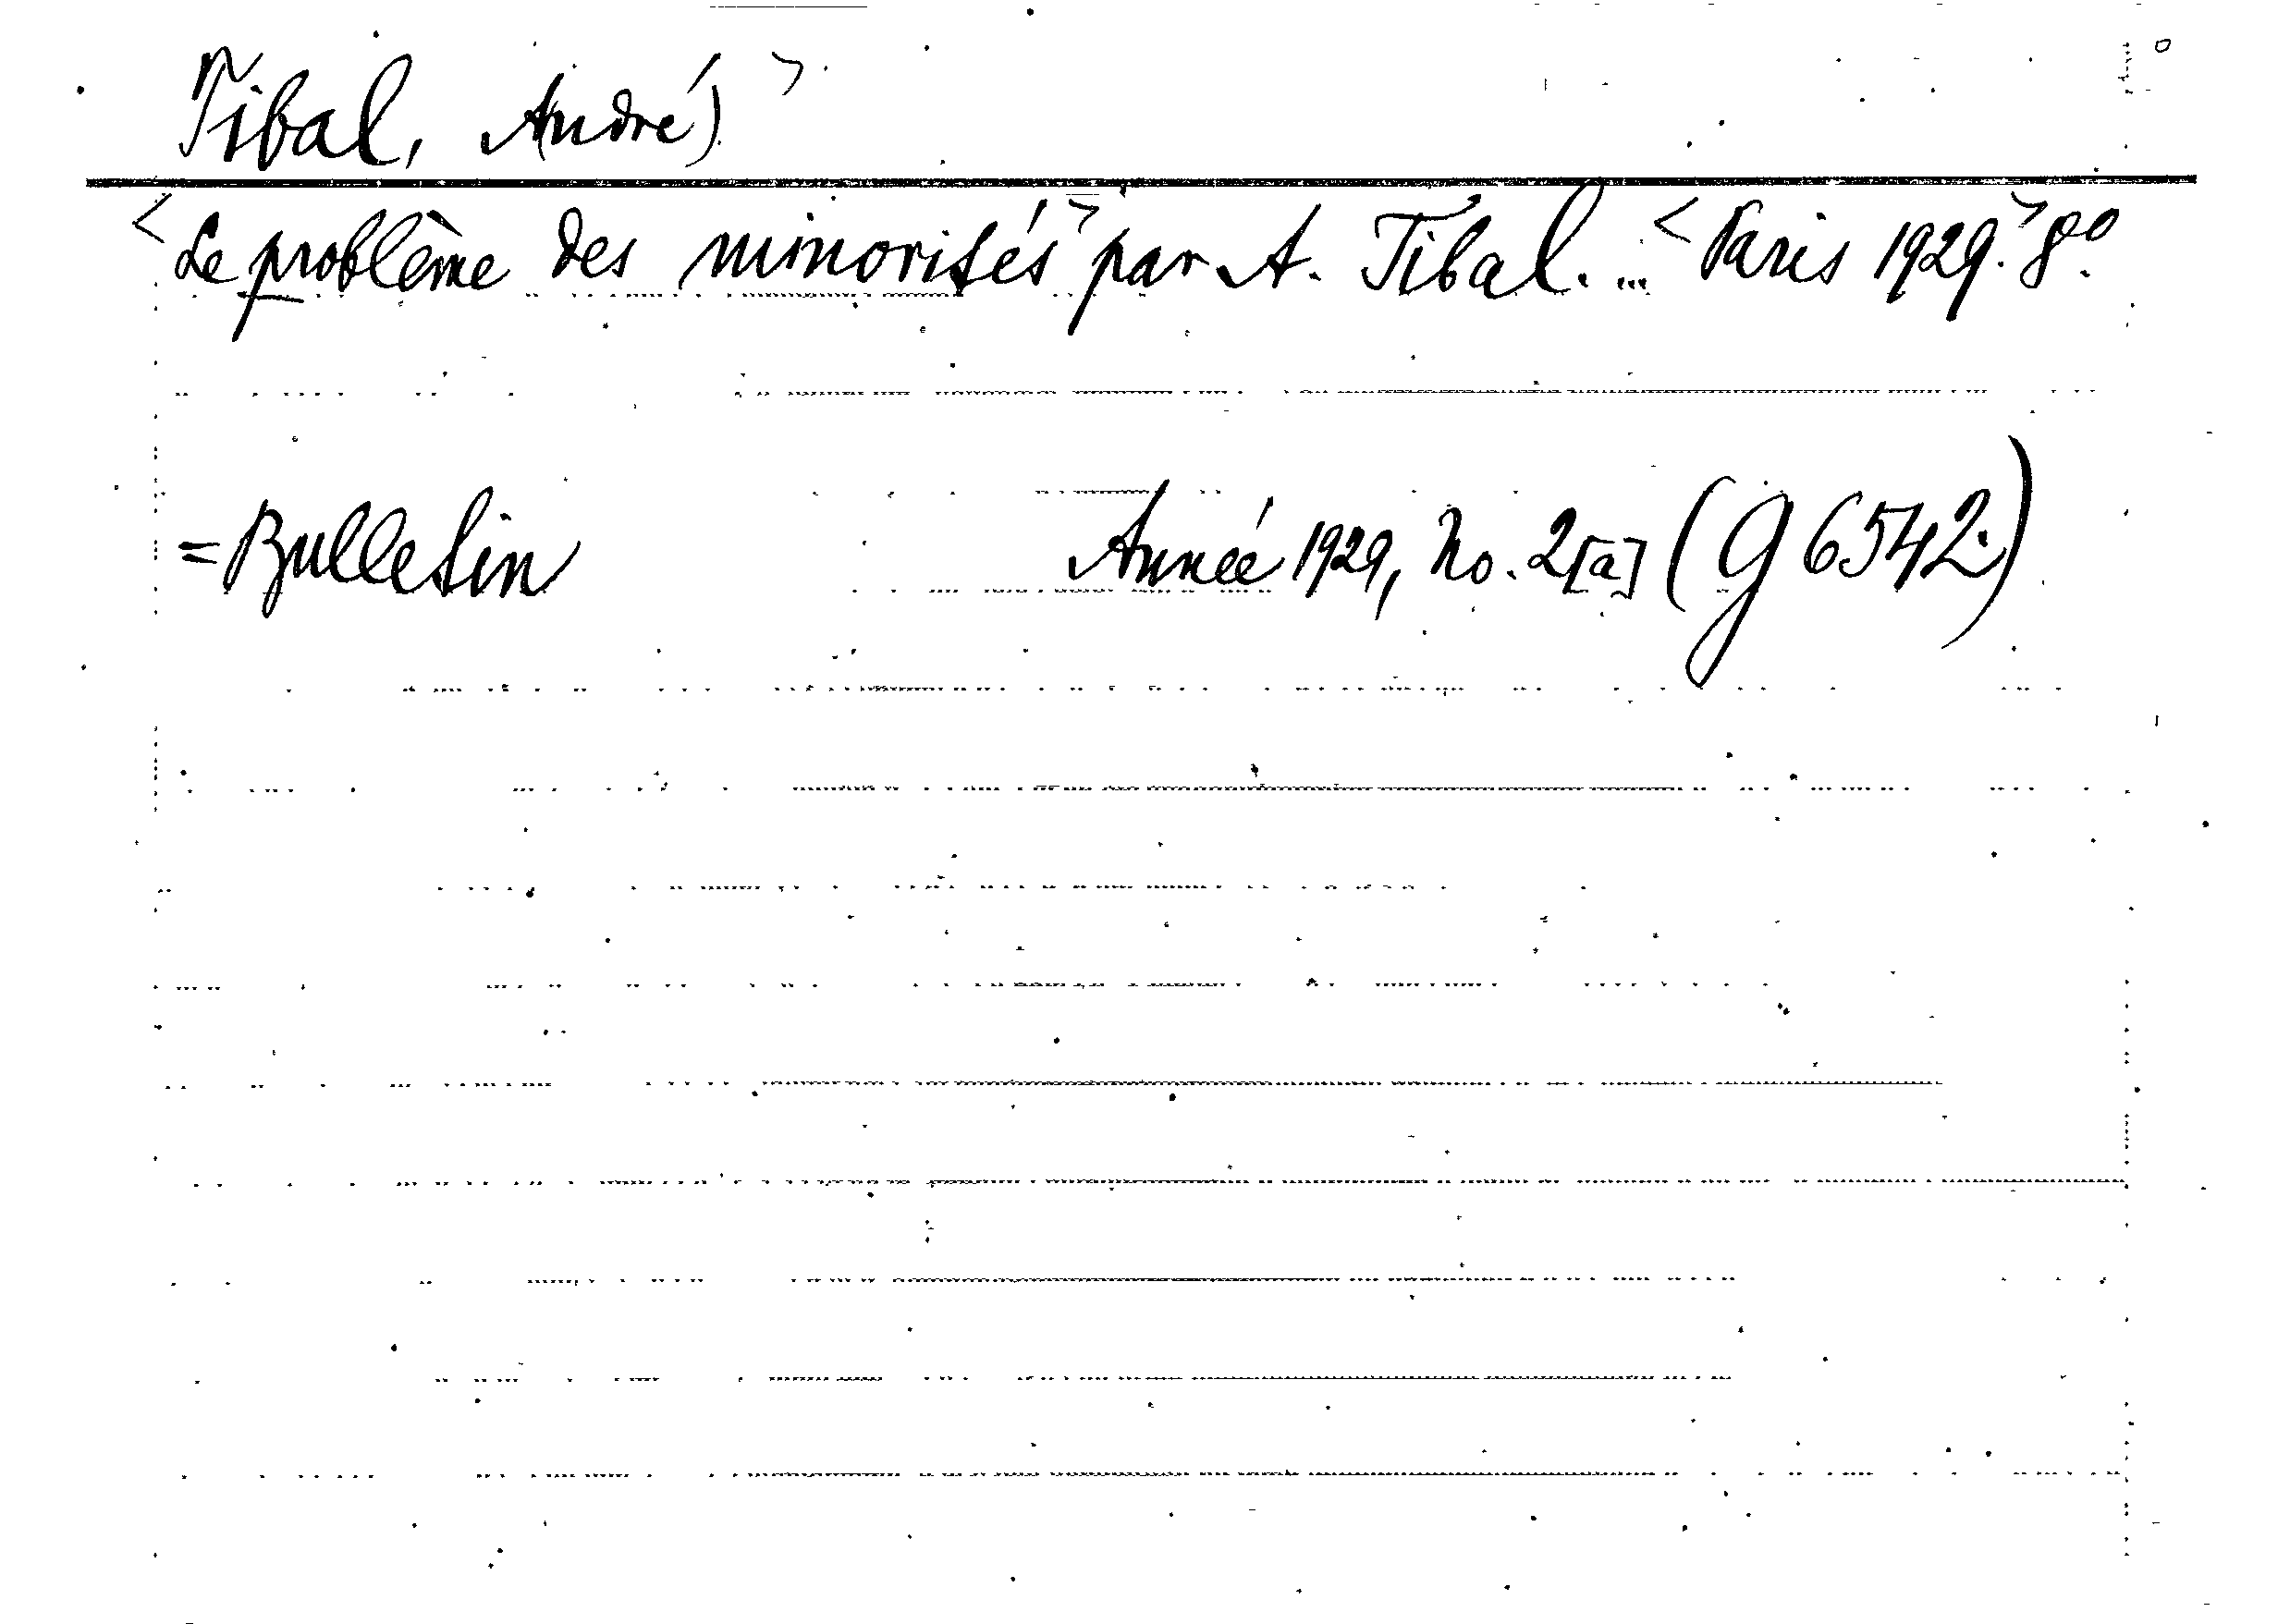 Tibal, A(ndré) >
<Le problème des minorités> par A. Tibal. ... <Paris 1929.> 8º.
= Bulletin Année 1929, No. 2[a] (G 6542.)